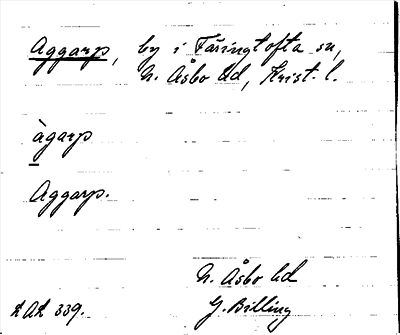 Aggarp, by i Färingtofta sn,
N. Åsbo hd, Krist. l.
àgarp
Aggarp.
N. Åsbo hd
G. Billing
LAL 339.